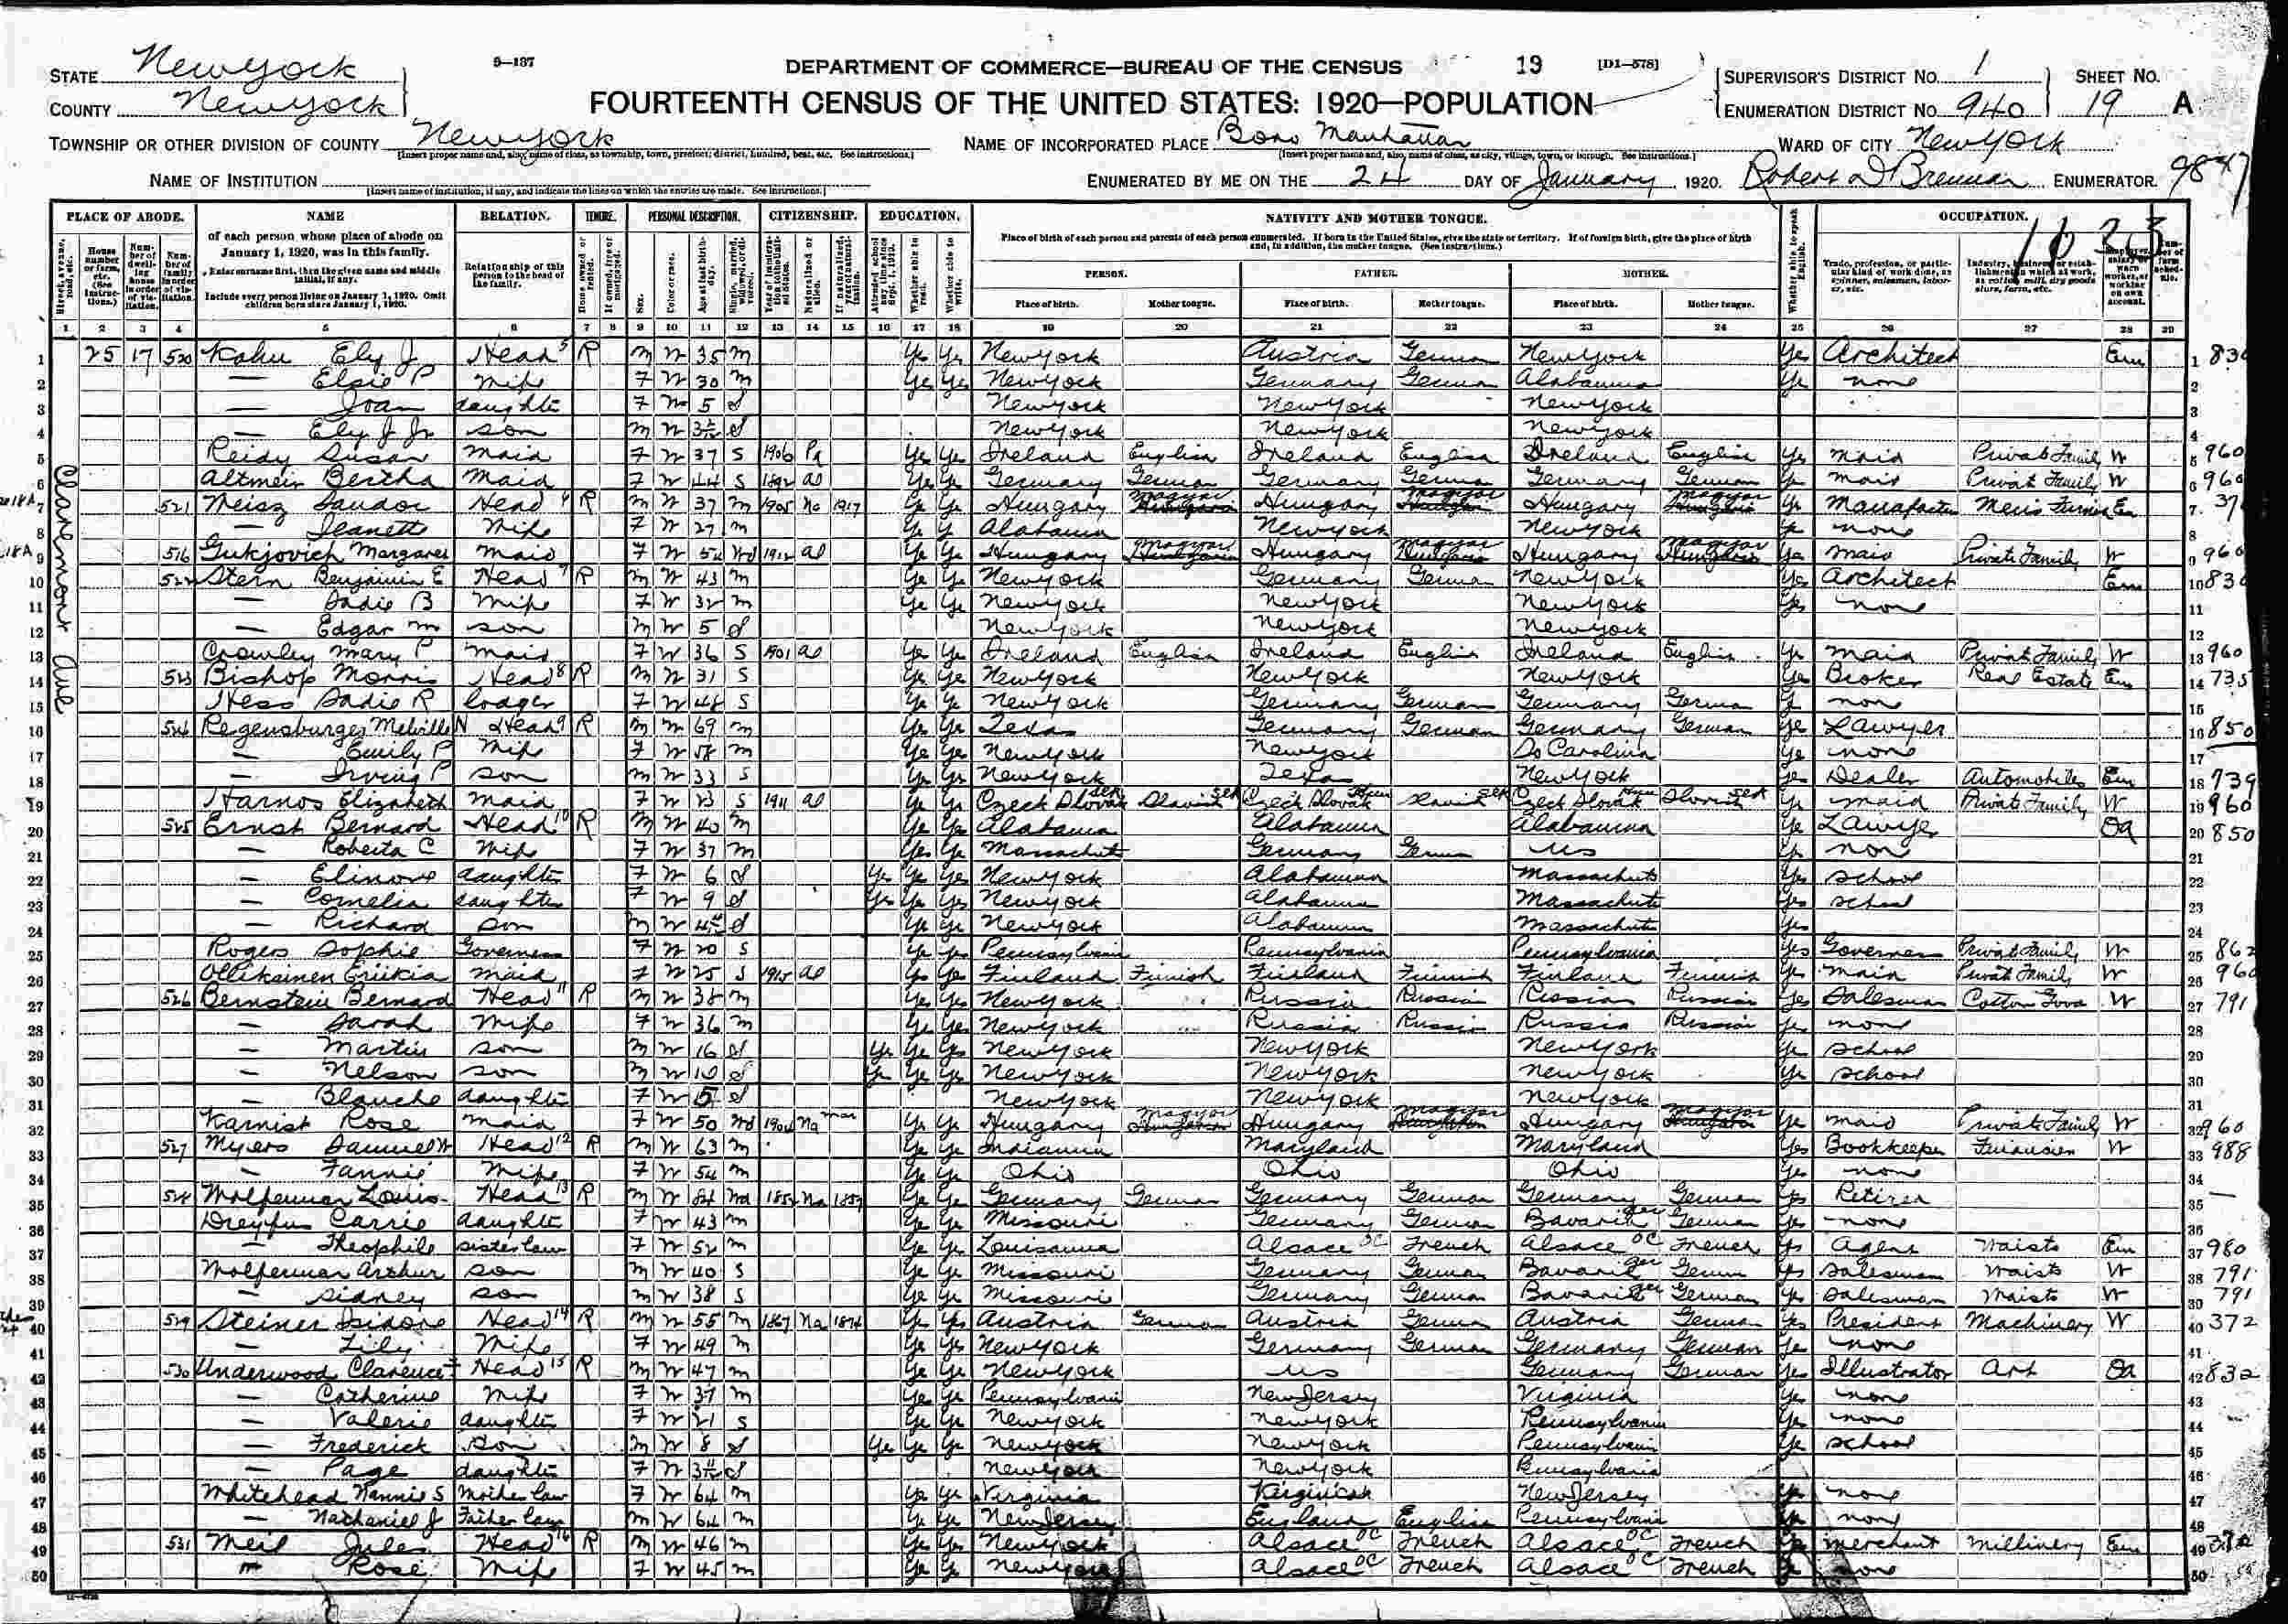 STATE New York
9—137
DEPARTMENT OF COMMERCE—BUREAU OF THE CENSUS
19
[D1—578]
SUPERVISOR'S DISTRICT NO. 1
SHEET NO.
COUNTY New York
FOURTEENTH CENSUS OF THE UNITED STATES: 1920—POPULATION
ENUMERATION DISTRICT NO. 940
19 A
TOWNSHIP OR OTHER DIVISION OF COUNTY New York
NAME OF INCORPORATED PLACE Boro Manhattan
WARD OF CITY New York
[Insert proper name and, also, name of class, as township, town, precinct, district, hundred, beat, etc. See instructions.]
[Insert proper name and, also, name of class, as city, village, town, or borough. See instructions.]
NAME OF INSTITUTION
[Insert name of institution, if any, and indicate the lines on which the entries are made. See instructions.]
ENUMERATED BY ME ON THE 24 DAY OF January, 1920. Robert D Brennan ENUMERATOR. 9847
PLACE OF ABODE. NAME RELATION. TENURE. PERSONAL DESCRIPTION. CITIZENSHIP. EDUCATION. NATIVITY AND MOTHER TONGUE. OCCUPATION.
of each person whose place of abode on January 1, 1920, was in this family.
Enter surname first, then the given name and middle initial, if any.
Include every person living on January 1, 1920. Omit children born since January 1, 1920.
Relationship of this person to the head of the family.
Place of birth of each person and parents of each person enumerated. If born in the United States, give the state or territory. If of foreign birth, give the place of birth and, in addition, the mother tongue. (See instructions.)
PERSON. FATHER. MOTHER.
Place of birth. Mother tongue. Place of birth. Mother tongue. Place of birth. Mother tongue.
1 2 3 4 5 6 7 8 9 10 11 12 13 14 15 16 17 18 19 20 21 22 23 24 25 26 27 28 29
Claremont Ave
1 25 17 520 Kahn Ely J Head R M W 35 M Yes Yes New York Austria German New York Yes Architect Em 830
2 — Elsie P Wife F W 30 M Yes Yes New York Germany German Alabama Yes none
3 — Joan daughter F W 5 S New York New York New York
4 — Ely J Jr son M W S New York New York New York
5 Reidy Susan Maid F W 37 S 1906 Pa Yes Yes Ireland English Ireland English Ireland English Yes maid Private Family W 960
6 Bertha Maid F W 44 S 1892 al Yes Yes Germany German Germany German Germany German Yes maid Private Family W 960
7 521 Sandor Head R M W 37 M 1905 Na 1917 Yes Yes Hungary Magyar Hungary Magyar Hungary Magyar Yes Em
8 — Jeanette Wife F W 27 M Yes Yes Alabama New York New York Yes none
9 516 Margaret Maid F W Wd 1912 al Yes Yes Hungary Magyar Hungary Magyar Hungary Magyar Yes maid Private Family W 960
10 522 Stern Benjamin E Head R M W 43 M Yes Yes New York Germany German New York Yes Architect Em 830
11 — Sadie B Wife F W 32 M Yes Yes New York New York New York Yes none
12 — Edgar M son M W 5 S New York New York New York
13 Crowley Mary P maid F W 36 S 1901 al Yes Yes Ireland English Ireland English Ireland English Yes maid Private Family W 960
14 523 Bishop Morris Head R M W 31 S Yes Yes New York New York New York Yes Broker Real Estate Em 735
15 Hess Sadie R lodger F W 48 S Yes Yes New York Germany German Germany German Yes none
16 524 Regensburger Melville N Head R M W 69 M Yes Yes Texas Germany German Germany German Yes Lawyer 850
17 — Emily P Wife F W 58 M Yes Yes New York New York So Carolina Yes none
18 — Irving P son M W 33 S Yes Yes New York Texas New York Yes Dealer Automobiles Em 739
19 Harnos Elizabeth maid F W 23 S 1911 al Yes Yes Czech Slovak Slavish Czech Slovak Slavish Czech Slovak Slavish Yes maid Private Family W 960
20 525 Ernst Bernard Head R M W 40 M Yes Yes Alabama Alabama Alabama Yes Lawyer Oa 850
21 — Roberta C Wife F W 37 M Yes Yes Massachuts Germany German US Yes non
22 — Elinore daughter F W 6 S Yes Yes Yes New York Alabama Massachuts Yes School
23 — Cornelia daughter F W 9 S Yes Yes Yes New York Alabama Massachuts Yes School
24 — Richard son M W S Yes Yes New York Alabama Massachuts Yes
25 Rogers Sophie Governess F W 20 S Yes Yes Pennsylvania Pennsylvania Pennsylvania Yes Governess Private Family W 862
26 Ollikainen maid F W 25 S 1915 al Yes Yes Finland Finish Finland Finnish Finland Finnish Yes maid Private Family W 960
27 526 Bernstein Bernard Head R M W 38 M Yes Yes New York Russia Russian Russia Russian Yes Salesman Cotton Good W 791
28 — Sarah Wife F W 36 M Yes Yes New York Russia Russian Russia Russian Yes none
29 — Martin son M W 16 S Yes Yes Yes New York New York New York Yes School
30 — Nelson son M W 10 S Yes Yes Yes New York New York New York Yes School
31 — Blanche daughter F W 5 S New York New York New York
32 Karnist Rose maid F W 50 Wd Na Yes Yes Hungary Magyar Hungary Magyar Hungary Magyar Yes maid Private Family W 960
33 527 Myers Samuel W Head R M W 63 M Yes Yes Indiana Maryland Maryland Yes Bookkeeper W 988
34 — Fannie Wife F W 54 M Yes Yes Ohio Ohio Ohio Yes none
35 528 Louis Head R M W 84 Wd Na Yes Yes Germany German Germany German Germany German Yes Retired
36 Dreyfus Carrie daughter F W 43 M Yes Yes Missouri Germany German Bavaria German Yes none
37 — Theophile sisterlaw F W 52 M Yes Yes Louisanna Alsace OC French Alsace OC French Yes Agent Waists Em 980
38 Arthur son M W 40 S Yes Yes Missouri Germany German Bavaria German Yes Salesman Waists W 791
39 — Sidney son M W 38 S Yes Yes Missouri Germany German Bavaria German Yes Salesman Waists W 791
40 529 Steiner Isidore Head R M W 55 M 1867 Na 1874 Yes Yes Austria German Austria German Austria German Yes President Machinery W 372
41 — Lily Wife F W 49 M Yes Yes New York Germany German Germany German Yes none
42 530 Underwood Clarence F Head R M W 47 M Yes Yes New York US Germany German Yes Illustrator Art Oa 832
43 — Catherine Wife F W 37 M Yes Yes Pennsylvania New Jersey Virginia Yes none
44 — Valerie daughter F W 21 S Yes Yes New York New York Pennsylvania Yes none
45 — Frederick son M W 8 S Yes Yes Yes New York New York Pennsylvania Yes School
46 — Page daughter F W S New York New York Pennsylvania
47 Whitehead Nannie S Mother law F W 64 M Yes Yes Virginia Virginia New Jersey Yes none
48 — Nathaniel J Father law M W 64 M Yes Yes New Jersey England English Pennsylvania Yes none
49 531 Weil Jules Head R M W 46 M Yes Yes New York Alsace OC French Alsace OC French Yes Merchant Millinery Em
50 Rose Wife F W 45 M Yes Yes New York Alsace OC French Alsace OC French Yes none